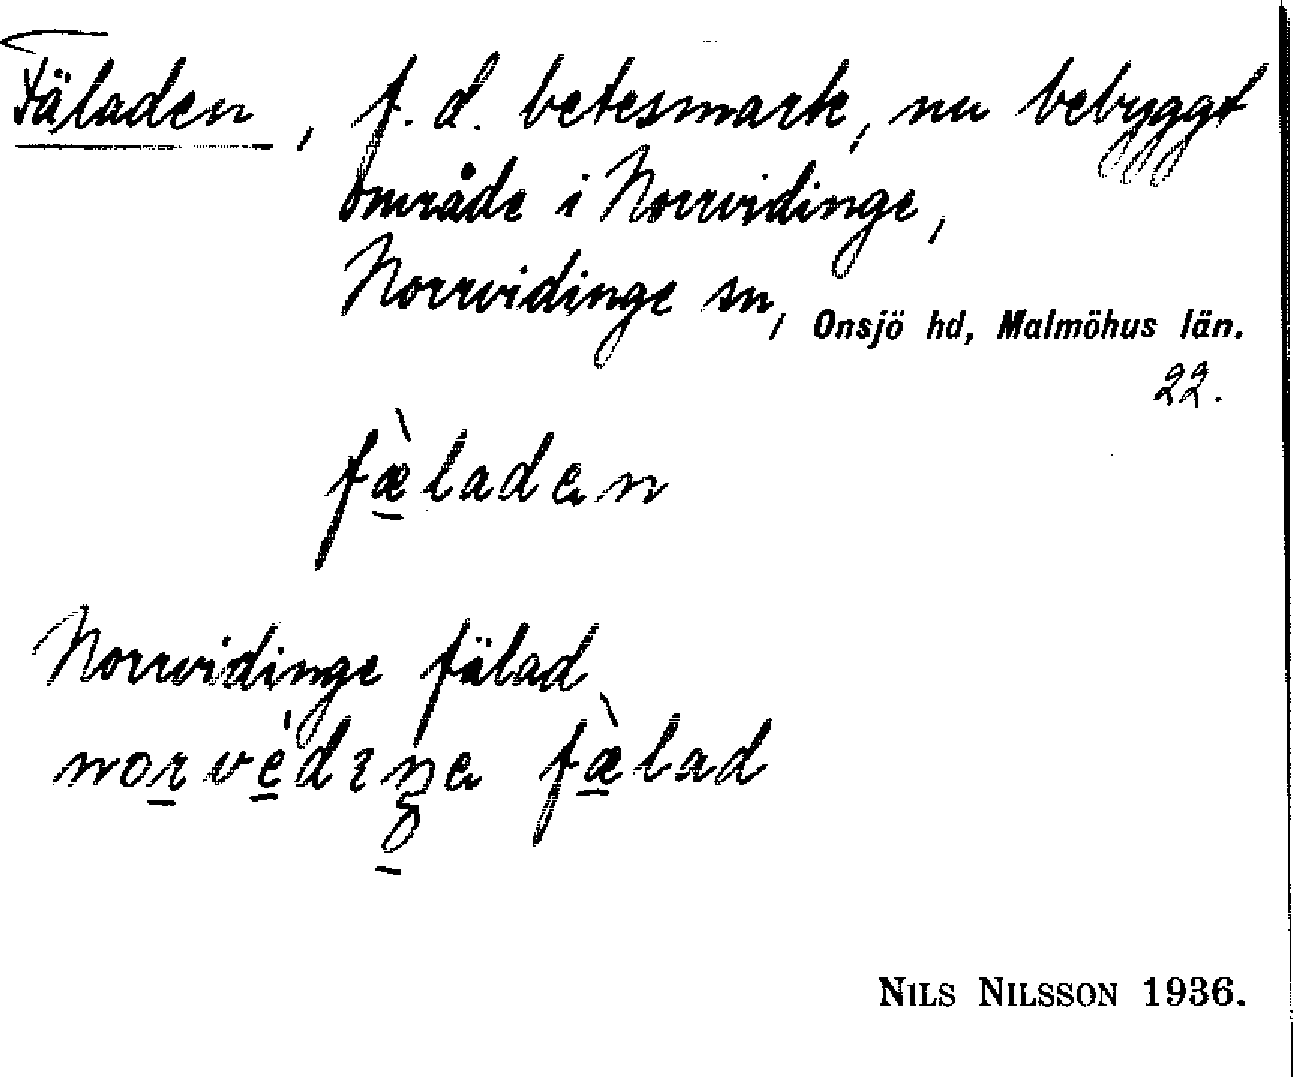 Fäladen, f.d. betesmark, nu bebyggt
område i Norrvidinge,
Norrvidinge sn, Onsjö hd, Malmöhus län.
22.
fæ̠̀laden
Norrvidinge fälad
nor̠ve̠̍dıŋ̠ə fæ̠̀lad
NILS NILSSON 1936.